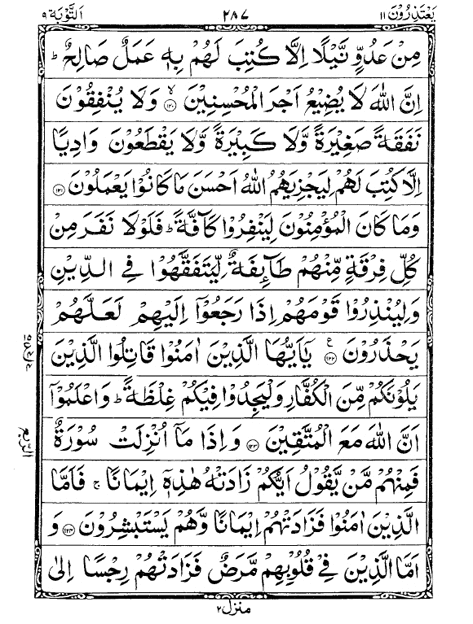 يَعْتَذِرُوْنَ ١١ ٢٨٧ اَلتَّوْبَة ٩
مِنْ عَدُوٍّ نَّيْلًا اِلَّا كُتِبَ لَهُمْ بِهٖ عَمَلٌ صَالِحٌ ؕ
اِنَّ اللّٰهَ لَا يُضِيْعُ اَجْرَ الْمُحْسِنِيْنَ ۙ﴿۱۲۰﴾ وَلَا يُنْفِقُوْنَ
نَفَقَةً صَغِيْرَةً وَّلَا كَبِيْرَةً وَّلَا يَقْطَعُوْنَ وَادِيًا
اِلَّا كُتِبَ لَهُمْ لِيَجْزِيَهُمُ اللّٰهُ اَحْسَنَ مَا كَانُوْا يَعْمَلُوْنَ ﴿۱۲۱﴾
وَمَا كَانَ الْمُؤْمِنُوْنَ لِيَنْفِرُوْا كَآفَّةً ؕ فَلَوْلَا نَفَرَ مِنْ
كُلِّ فِرْقَةٍ مِّنْهُمْ طَآئِفَةٌ لِّيَتَفَقَّهُوْا فِى الدِّيْنِ
وَلِيُنْذِرُوْا قَوْمَهُمْ اِذَا رَجَعُوْۤا اِلَيْهِمْ لَعَلَّهُمْ
يَحْذَرُوْنَ ﴿۱۲۲﴾ يٰۤاَيُّهَا الَّذِيْنَ اٰمَنُوْا قَاتِلُوا الَّذِيْنَ
يَلُوْنَكُمْ مِّنَ الْكُفَّارِ وَلْيَجِدُوْا فِيْكُمْ غِلْظَةً ؕ وَاعْلَمُوْۤا
اَنَّ اللّٰهَ مَعَ الْمُتَّقِيْنَ ﴿۱۲۳﴾ وَاِذَا مَاۤ اُنْزِلَتْ سُوْرَةٌ
فَمِنْهُمْ مَّنْ يَّقُوْلُ اَيُّكُمْ زَادَتْهُ هٰذِهٖۤ اِيْمَانًا ۚ فَاَمَّا
الَّذِيْنَ اٰمَنُوْا فَزَادَتْهُمْ اِيْمَانًا وَّهُمْ يَسْتَبْشِرُوْنَ ﴿۱۲۴﴾ وَ
اَمَّا الَّذِيْنَ فِىْ قُلُوْبِهِمْ مَّرَضٌ فَزَادَتْهُمْ رِجْسًا اِلٰى
منزل ٢